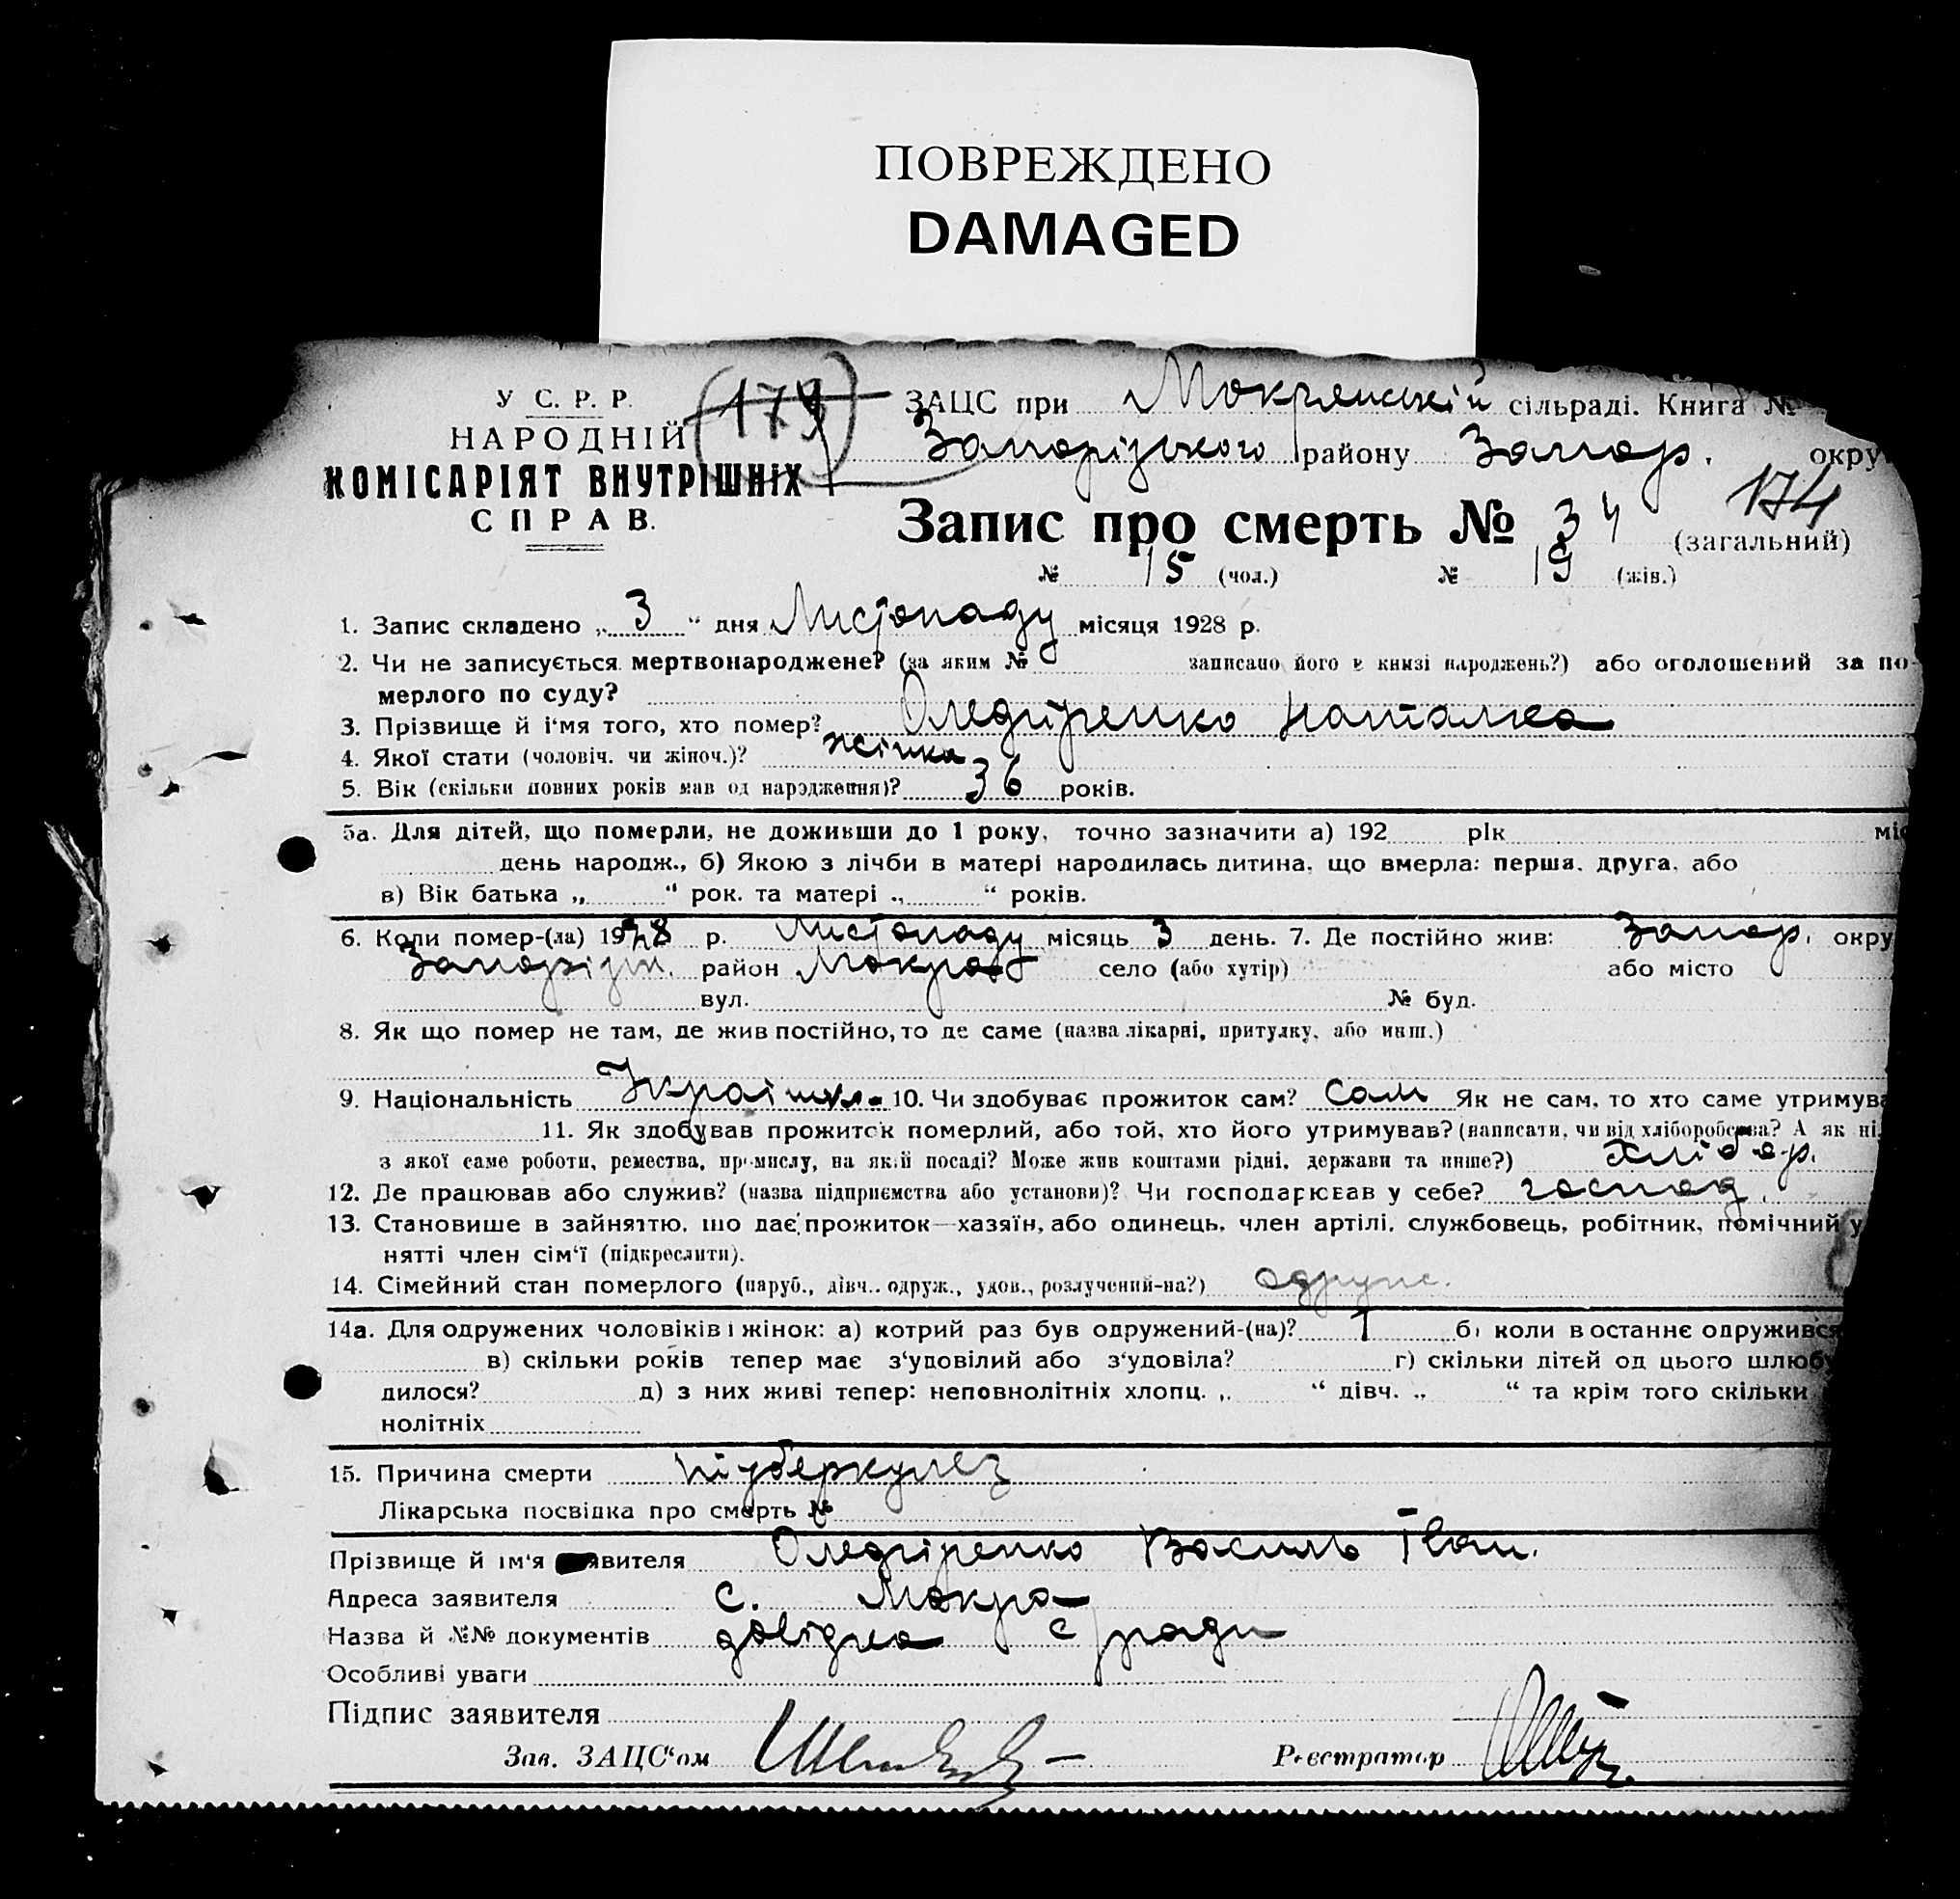 ПОВРЕЖДЕНО
DAMAGED
У С. Р. Р.
НАРОДНІЙ
КОМІСАРІЯТ ВНУТРІШНІХ
СПРАВ.
ЗАЦС при Мокрянській сільраді. Книга №
Запорізького району Запор. окру
174
Запис про смерть № 34 (загальний)
№ 15 (чол.) № 19 (жін.)
1. Запис складено „ 3 “ дня Листопаду місяця 1928 р.
2. Чи не записується мертвонароджене? (за яким № записано його в книзі народжень?) або оголошений за по-
мерлого по суду?
3. Прізвище й і'мя того, хто помер? Оледгіренко Наталка
4. Якої стати (чоловіч. чи жіноч.)? жінка
5. Вік (скільки повних років мав од народження)? 36 років.
5а. Для дітей, що померли, не доживши до 1 року, точно зазначити а) 192 рік міс
день народж., б) Якою з лічби в матері народилась дитина, що вмерла: перша, друга, або
в) Вік батька „ “ рок. та матері „ “ років.
6. Коли помер-(ла) 1928 р. Листопаду місяць 3 день. 7. Де постійно жив: Запор. окру
Запоріз. район Мокра село (або хутір) або місто
вул. № буд.
8. Як що помер не там, де жив постійно, то де саме (назва лікарні, притулку, або инш.)
9. Національність 10. Чи здобуває прожиток сам? Сам Як не сам, то хто саме утримува
11. Як здобував прожиток померлий, або той, хто його утримував? (написати, чи від хліборобства? А як ні,
з якої саме роботи, ремества, промислу, на якій посаді? Може жив коштами рідні, держави та инше?) хлібор.
12. Де працював або служив? (назва підприємства або установи)? Чи господарював у себе? господ.
13. Становище в зайняттю, що дає прожиток—хазяїн, або одинець, член артілі, службовець, робітник, помічний у
нятті член сім'ї (підкреслити).
14. Сімейний стан померлого (паруб., дівч., одруж., удов., розлучений-на?) одруж.
14а. Для одружених чоловіків і жінок: а) котрий раз був одружений-(на)? 1 б) коли в останнє одружився
в) скільки років тепер має з'удовілий або з'удовіла? г) скільки дітей од цього шлюбу
дилося? д) з них живі тепер: неповнолітніх хлопц. „ “ дівч. „ “ та крім того скільки
нолітніх
15. Причина смерти туберкулез
Лікарська посвідка про смерть №
Прізвище й ім'я заявителя Оледгіренко Василь Іван.
Адреса заявителя с. Мокра
Назва й №№ документів довідка с/ради
Особливі уваги
Підпис заявителя
Зав. ЗАЦС'ом
Реєстратор